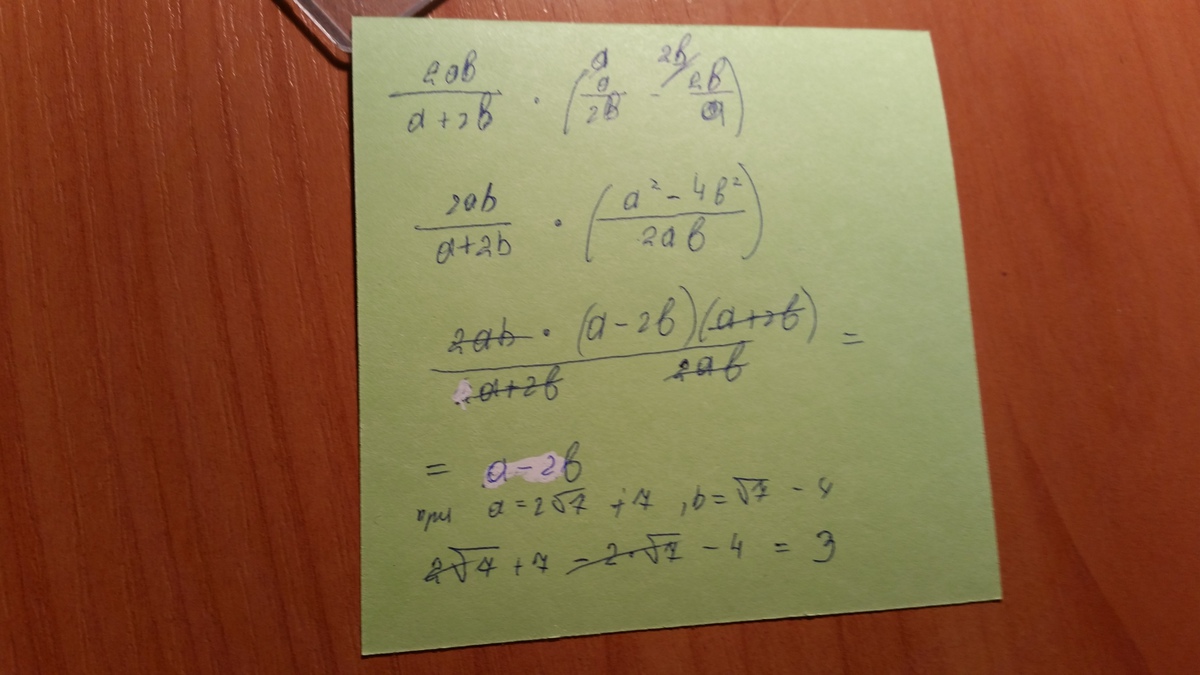 2ab/(a+2b) · (a/2b - 2b/a) a 2b
2ab/(a+2b) · ((a² - 4b²)/2ab)
2ab · (a - 2b)(a+2b) / a+2b 2ab =
= a - 2b
при a = 2√7 + 7, b = √7 - 4
2√7 + 7 - 2·√7 - 4 = 3